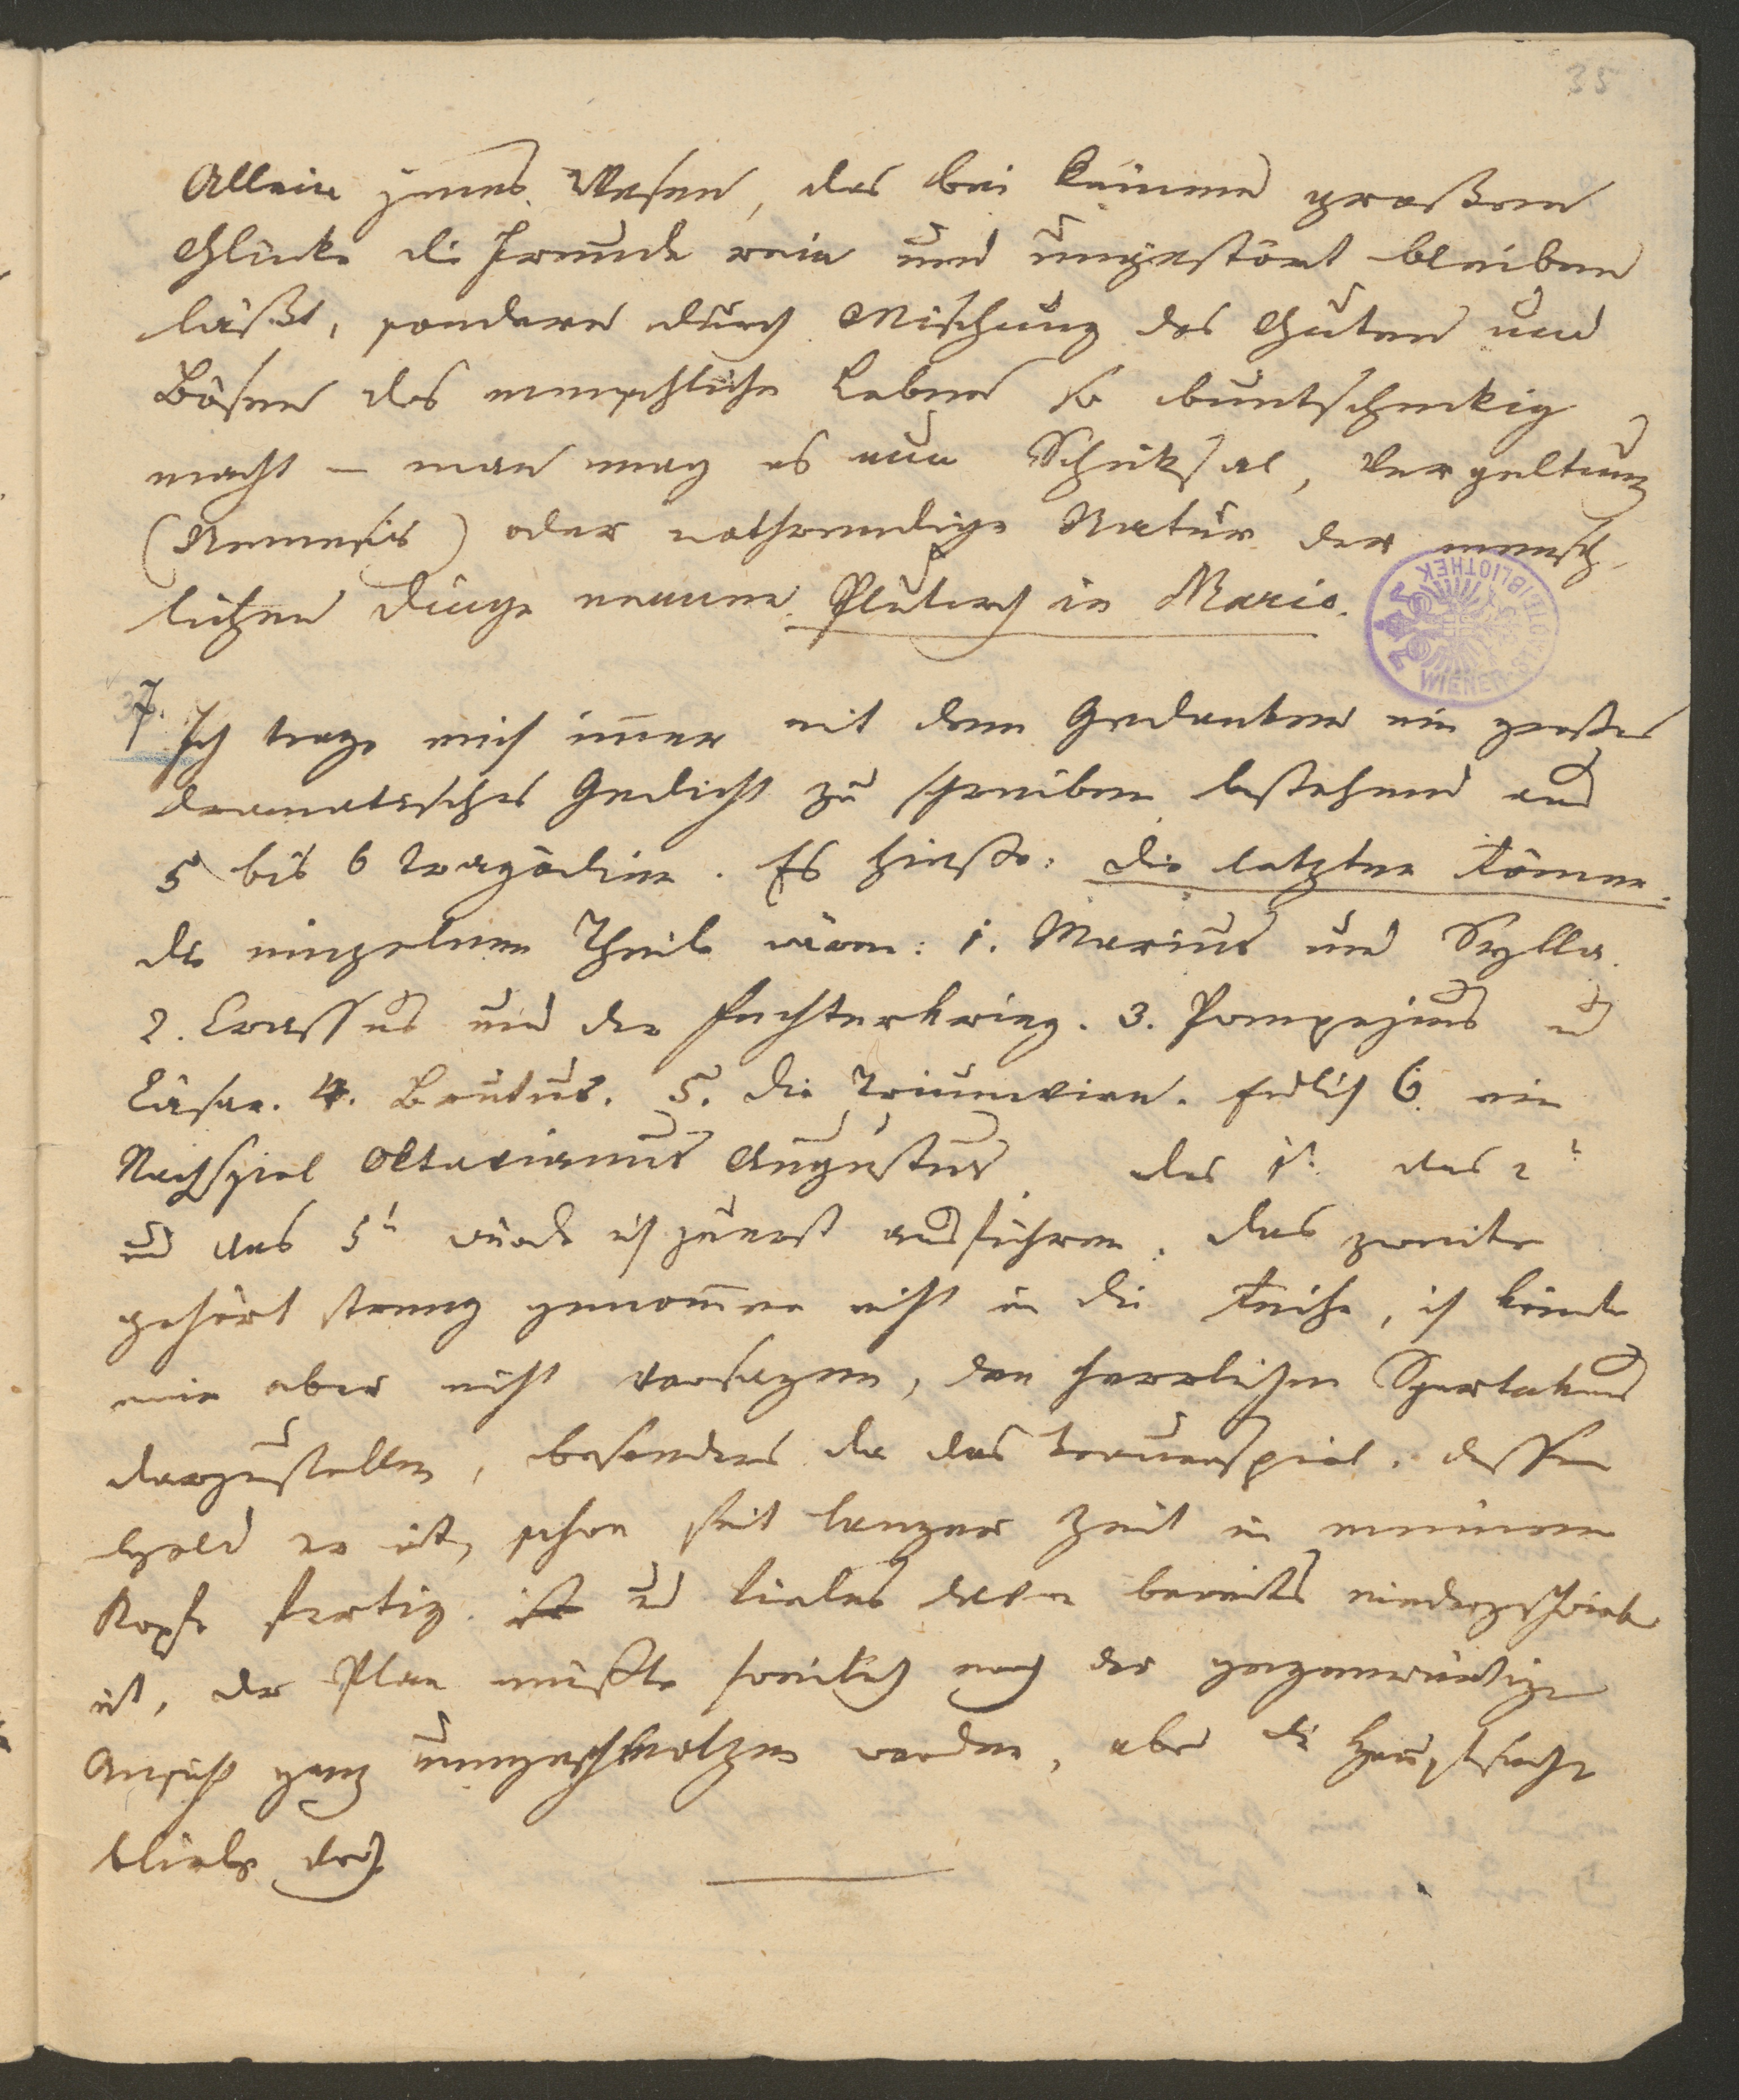 35
Allein jenes Wesen, das bei keinem großen
Glücke die Freude rein und ungestört bleiben
läßt, sondern durch Mischung des Guten und
Bösen das menschliche Leben so buntscheckig
macht – man mag es nun Schiksal, Vergeltung
(Nemesis) oder nothwendige Natur der mensch-
lichen Dinge nennen. Plutarch in Mario.
7. Ich trage mich im̄er mit dem Gedanken ein großes
dramatisches Gedicht zu schreiben bestehend aus
5 bis 6 Tragödien. Es hieße: Die letzten Römer.
die einzelnen Theile wären: 1. Marius und Sylla.
2. Crassus und der Fechterkrieg. 3. Pompejus und
Cäsar. 4. Brutus. 5. Die Triumvirn. Endlich 6. ein
Nachspiel Oktavianus Augustus. das 1t. das 2t
und das 5t würde ich zuerst ausführen. das zweite
gehört streng genom̄en nicht in die Reihe, ich könnte
mir aber nicht versagen, den herrlichen Spartakus
darzustellen, besonders da das Trauerspiel, dessen
Held er ist, schon seit langer Zeit in meinem
Kopfe fertig ist und vieles davon bereits niedergeschrieben
ist, der Plan müßte freilich nach der gegenwärtigen
Ansicht ganz umgeschmolzen werden, aber die Hauptsache
bliebe doch
WIENER STADTBIBLIOTHEK